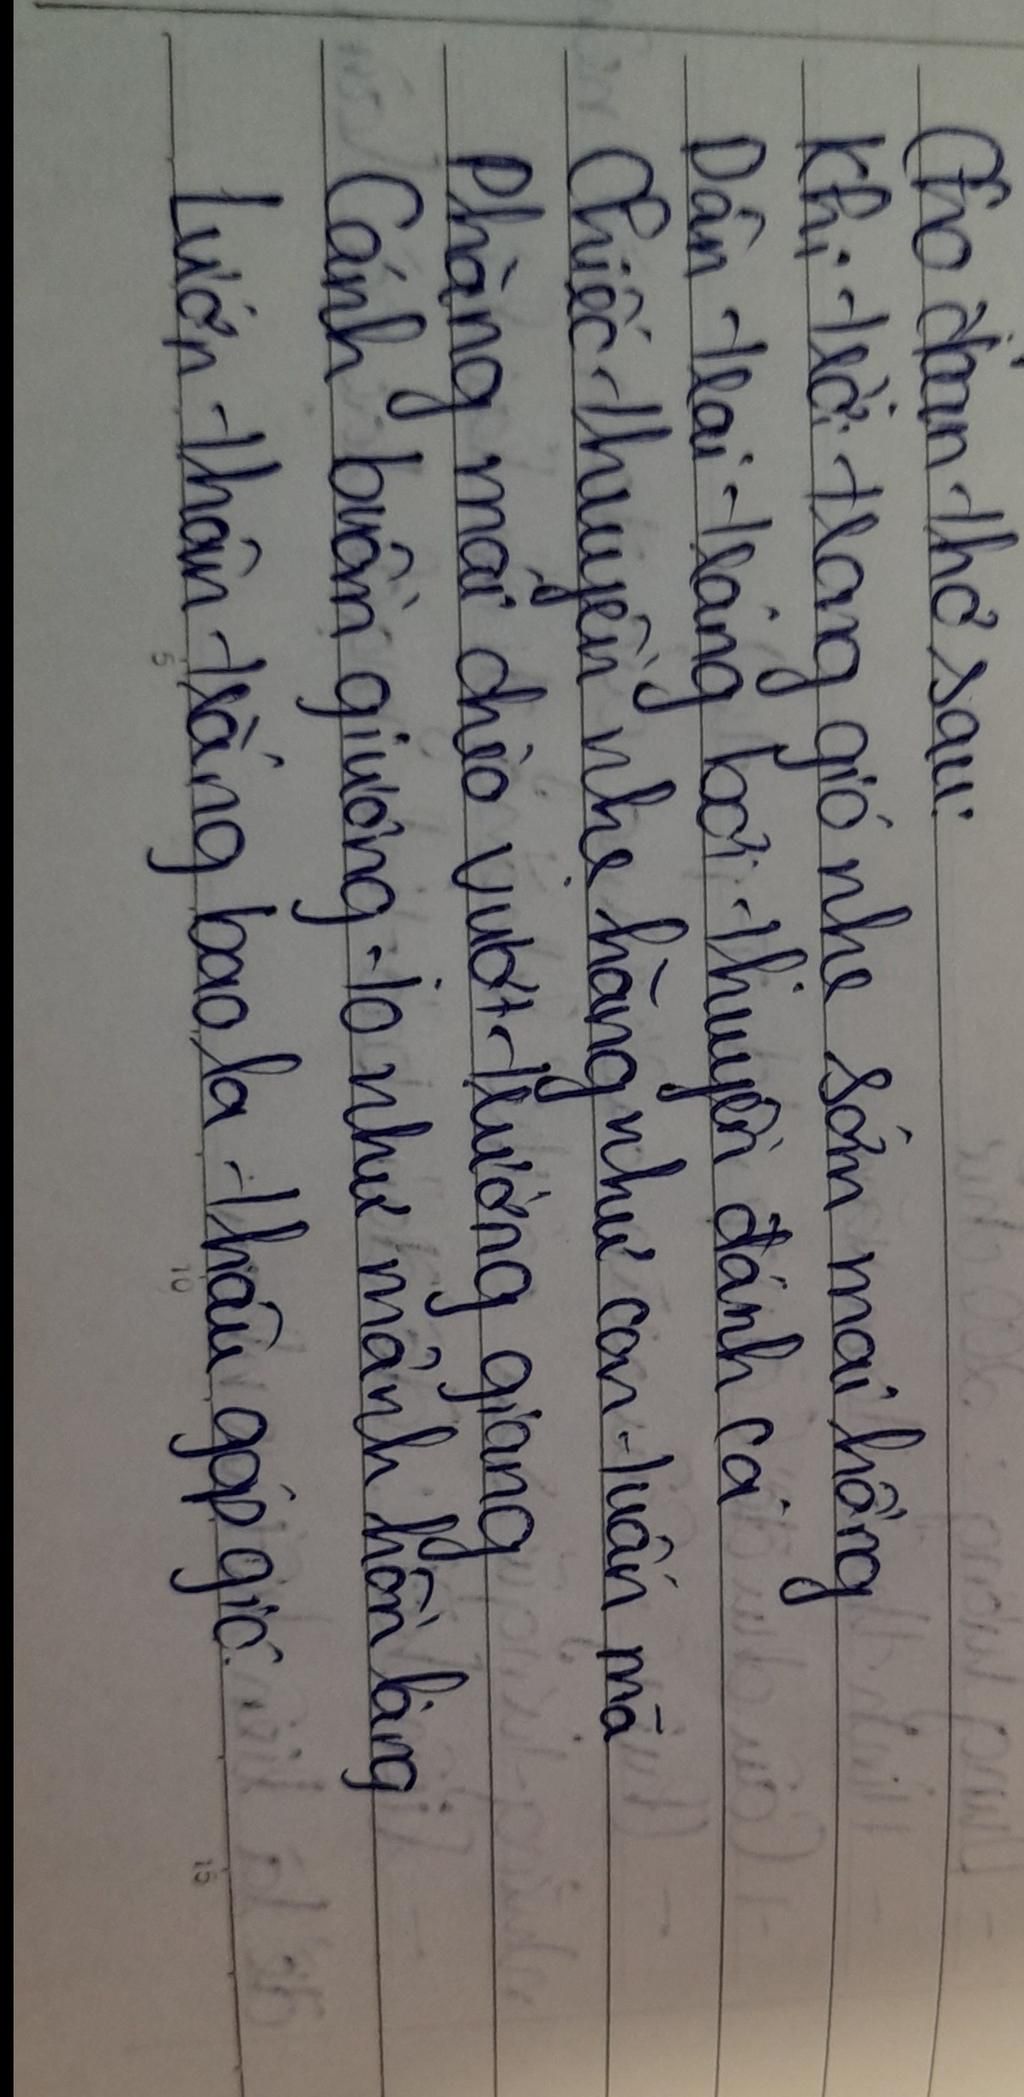 Cho đoạn thơ sau:
Khi trời trong gió nhẹ sớm mai hồng
Dân trai tráng bơi thuyền đánh cá
Chiếc thuyền nhẹ hăng như con tuấn mã
Phăng mái chèo vượt trường giang
Cánh buồm giương to như mảnh hồn làng
Lướn thân trắng bao la thâu góp gió.
5
10
15